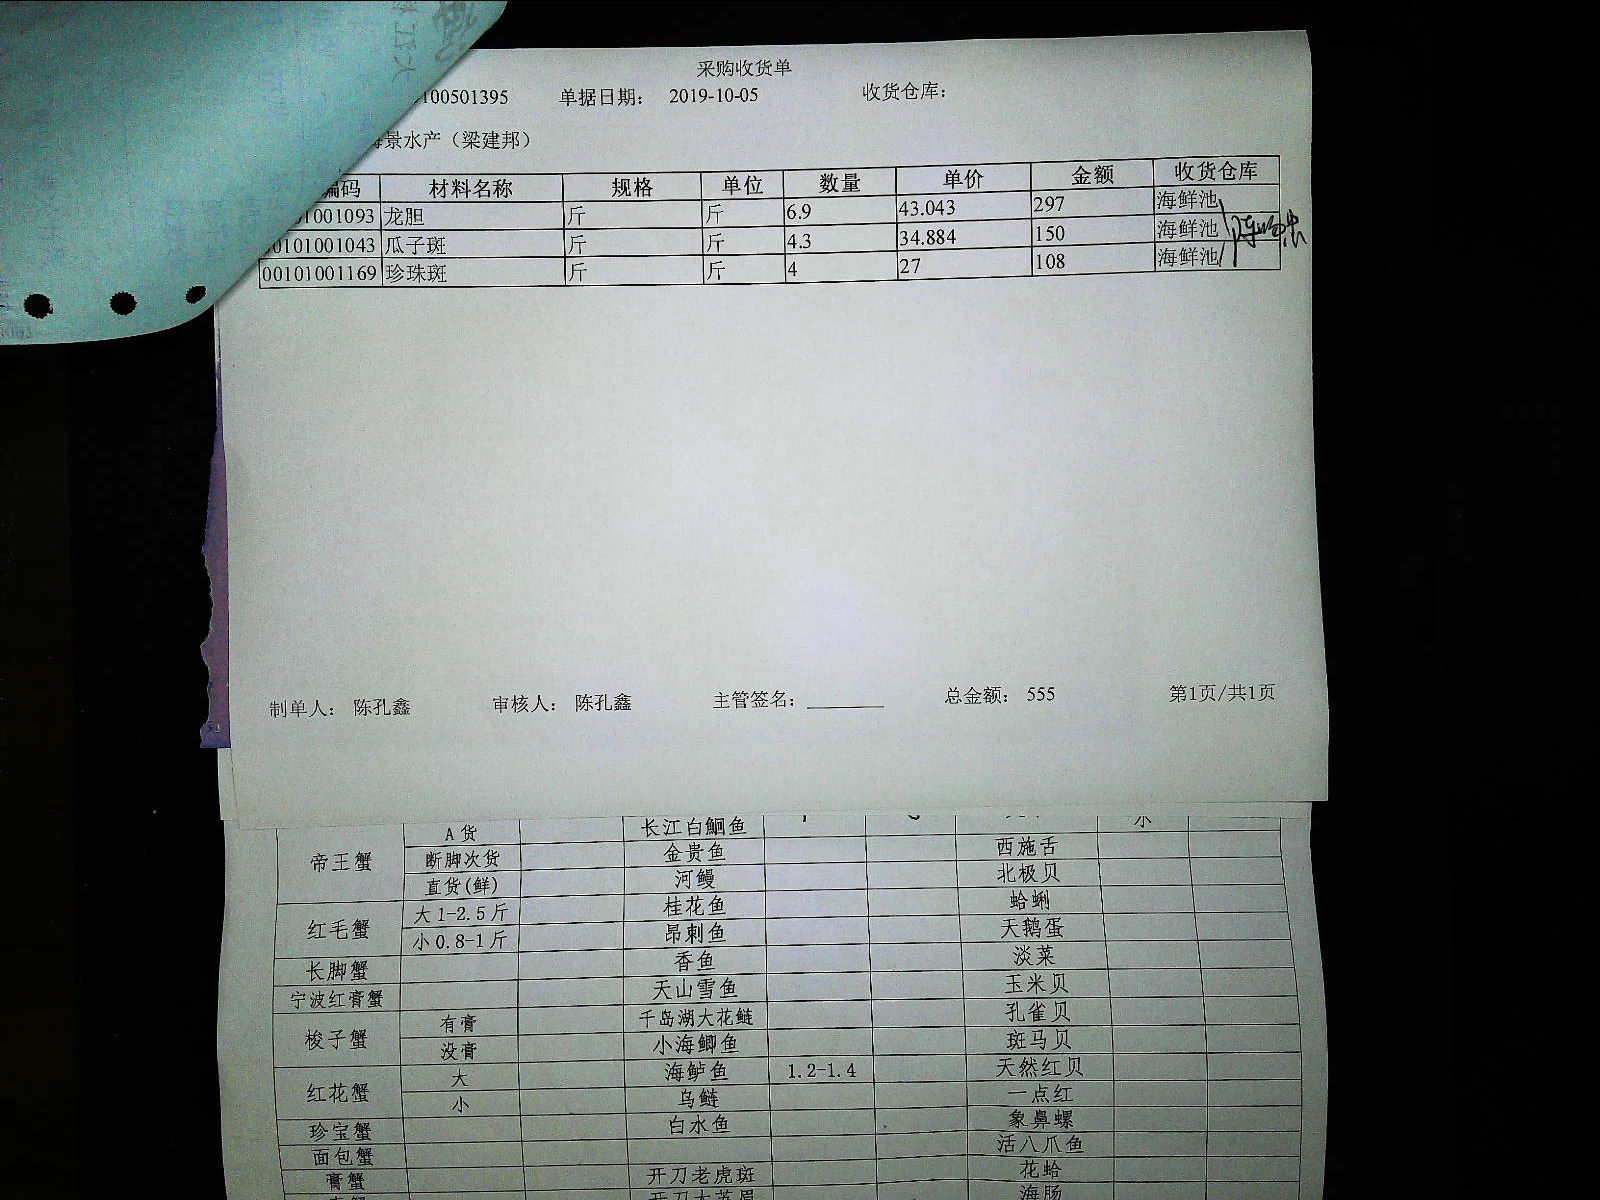 采购收货单
100501395 单据日期： 2019-10-05 收货仓库：
景水产（梁建邦）
编码 材料名称 规格 单位 数量 单价 金额 收货仓库
01001093 龙胆 斤 斤 6.9 43.043 297 海鲜池
0101001043 瓜子斑 斤 斤 4.3 34.884 150 海鲜池
00101001169 珍珠斑 斤 斤 4 27 108 海鲜池
制单人： 陈孔鑫 审核人： 陈孔鑫 主管签名： 总金额： 555 第1页/共1页
帝王蟹 A货 长江白鮰鱼 小
断脚次货 金贵鱼 西施舌
直货(鲜) 河鳗 北极贝
红毛蟹 大1-2.5斤 桂花鱼 蛤蜊
小0.8-1斤 昂刺鱼 天鹅蛋
长脚蟹 香鱼 淡菜
宁波红膏蟹 天山雪鱼 玉米贝
梭子蟹 有膏 千岛湖大花鲢 孔雀贝
没膏 小海鲫鱼 斑马贝
红花蟹 大 海鲈鱼 1.2-1.4 天然红贝
小 乌鲢 一点红
珍宝蟹 白水鱼 象鼻螺
面包蟹 活八爪鱼
膏蟹 开刀老虎斑 花蛤
海肠